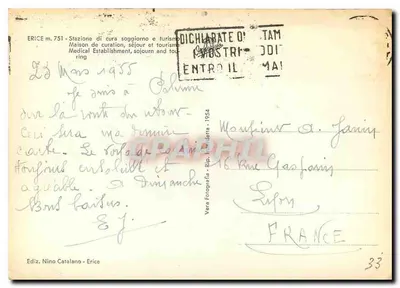 ERICE m. 751 - Stazione di cura soggiorno e turismo
Maison de curation, séjour et tourisme
Medical Establishment, sojourn and tou-
ring
DICHIARATE O TAM
I VOSTRI ODI
ENTRO IL MA
23 Mars 1955
Je suis à
sur la route du retour
Ceci sera ma dernière
carte. Le voyage
toujours et
agréable. à Dimanche
Bons baisers
E J.
CPARAMA
Vera Fotografia - Rip. 1954
Monsieur A.
16 Rue Gasparin
Lyon
FRANCE
33
Ediz. Nino Catalano - Erice